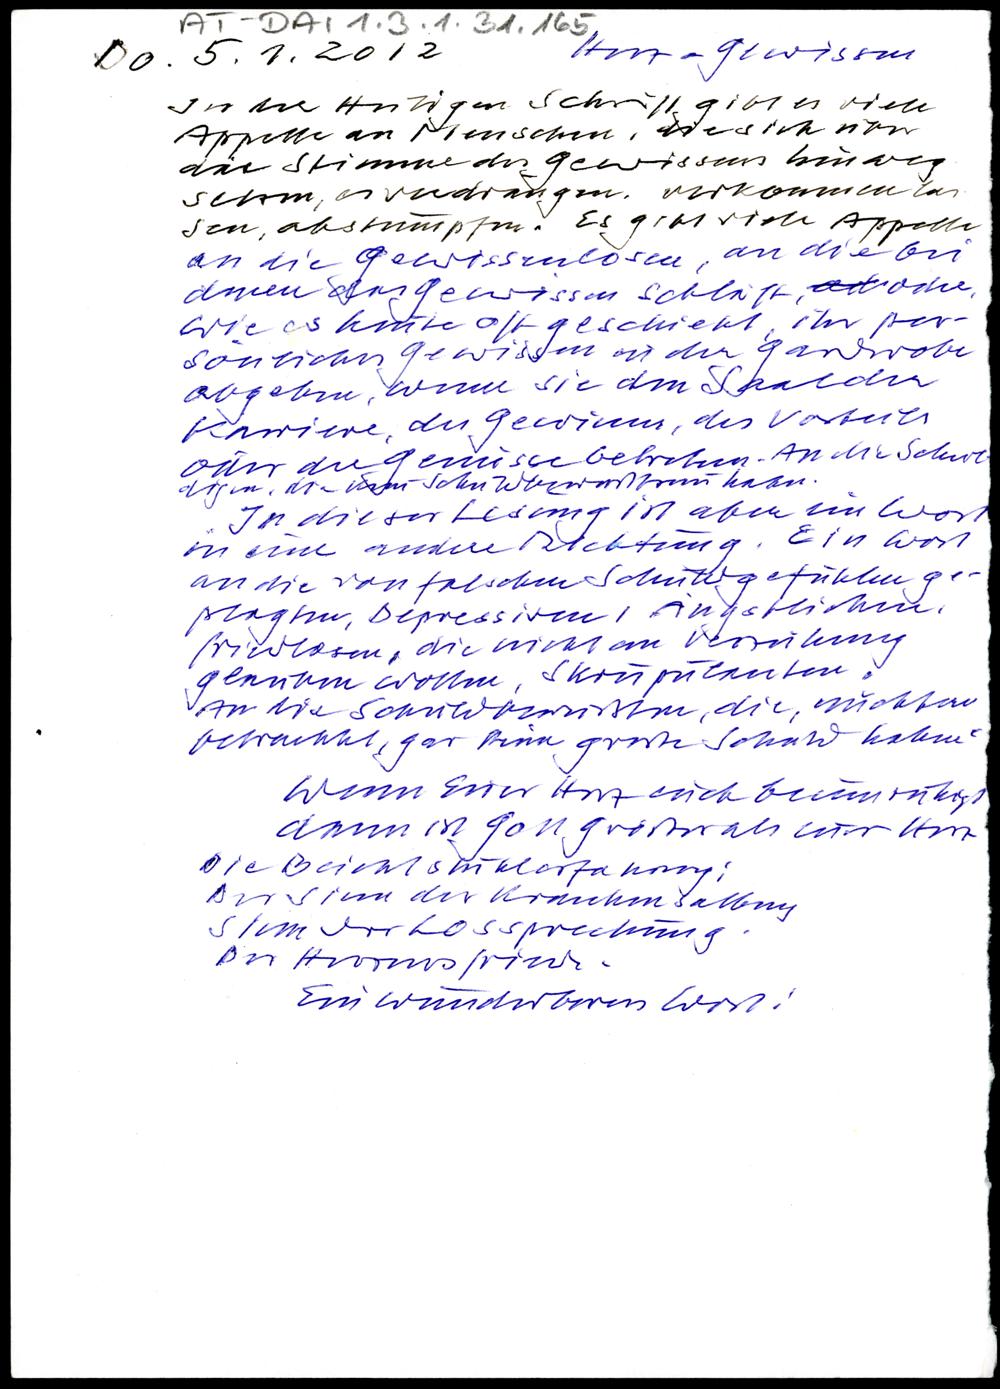 AT-DAI 1.3.1.31.165
Do. 5.1.2012 Herz = Gewissen
In der Heiligen Schrift gibt es viele
Appelle an Menschen, die sich über
die Stimme des Gewissens hinweg
setzen, es verdrängen, verkommen las
sen, abstumpfen. Es gibt viele Appelle
an die Gewissenlosen, an die bei
denen das Gewissen schläft, oder,
wie es heute oft geschieht, ihr per-
sönliches Gewissen an der Garderobe
abgeben, wenn sie den Saal der
Karriere, des Gewinns, des Vorteils
oder der Genüsse betreten. An die Schul
digen, die kein Schuldbewußtsein haben.
In dieser Lesung ist aber ein Wort
in eine andere Richtung. Ein Wort
an die von falschen Schuldgefühlen ge-
plagten, Depressiven, Ängstlichen,
friedlosen, die nicht an Verzeihung
glauben wollen, Skrupulanten.
An die Schuldbewußten, die, nüchtern
betrachtet, gar keine große Schuld haben:
Wenn Euer Herz euch beunruhigt
dann ist Gott größer als euer Herz
Die Beichtstuhlerfahrung:
Der Sinn der Krankensalbung
Sinn der Lossprechung.
Der Herzensfriede.
Ein wunderbares Wort!